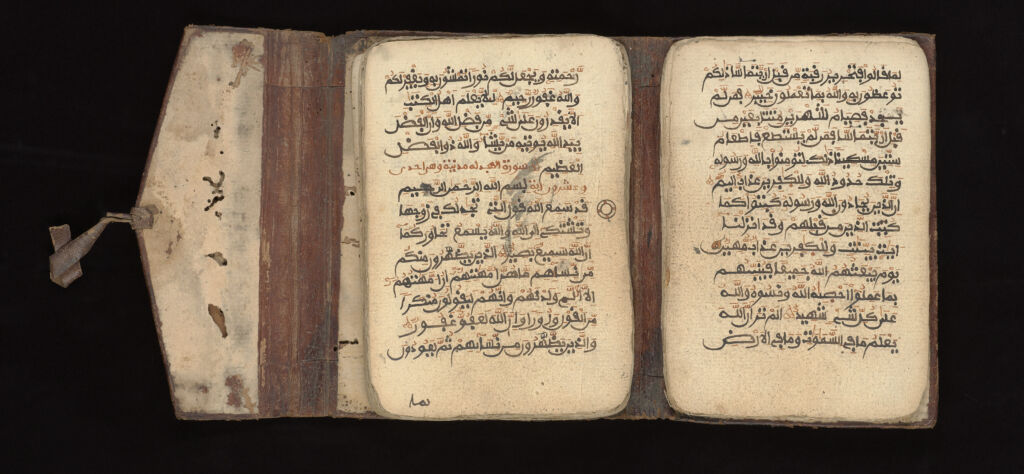 رحمته ويجعل لكم نورا تمشون به ويغفر لكم
والله غفور رحيم ليلا يعلم اهل الكتب
الا يقدرون على شيء من فضل الله وان الفضل
بيد الله يوتيه من يشا والله ذو الفضل
العظيم سورة المجدله مدنية وهي احدى
وعشرون اية بسم الله الرحمن الرحيم
قد سمع الله قول التي تجدلك في زوجها
وتشتكي الى الله والله يسمع تحاوركما
ان الله سميع بصير الذين يظهرون منكم
من نسايهم ما هن امهتهم ان امهتهم
الا الي ولدنهم وانهم ليقولون منكرا
من القول وزورا وان الله لعفو غفور
والذين يظهرون من نسايهم ثم يعودون
لما
لما قالوا فتحرير رقبة من قبل ان يتماسا ذلكم
توعظون به والله بما تعملون خبير فمن لم
يجد فصيام شهرين متتابعين من
قبل ان يتماسا فمن لم يستطع فاطعام
ستين مسكينا ذلك لتومنوا بالله ورسوله
وتلك حدود الله وللكفرين عذاب اليم
ان الذين يحادون الله ورسوله كبتوا كما
كبت الذين من قبلهم وقد انزلنا
ايت بينت وللكفرين عذاب مهين
يوم يبعثهم الله جميعا فينبيهم
بما عملوا احصيه الله ونسوه والله
على كل شيء شهيد الم تر ان الله
يعلم ما في السموت وما في الارض